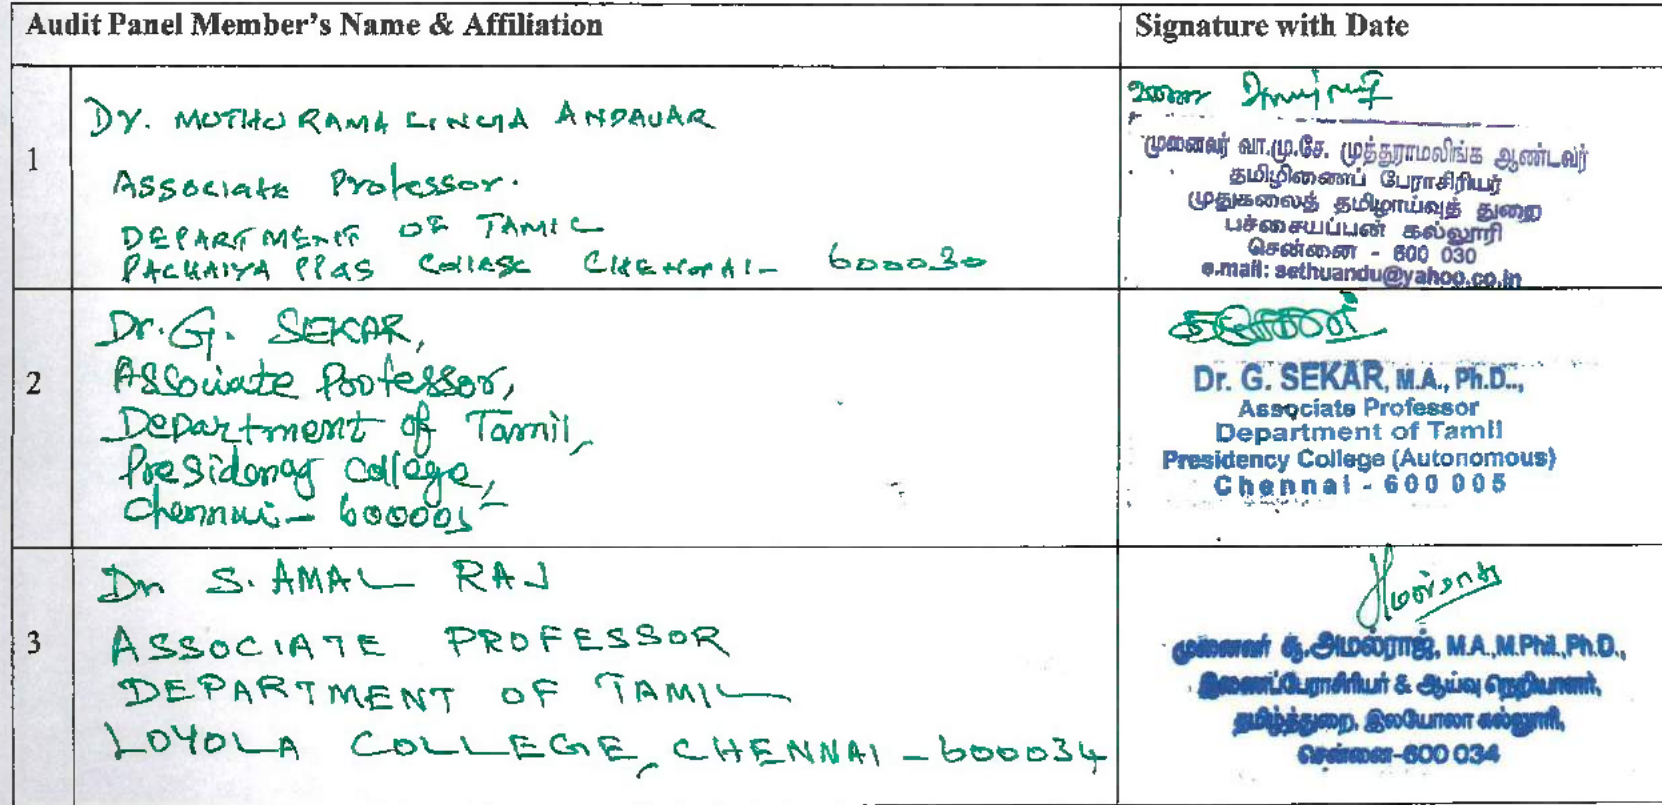 Audit Panel Member's Name & Affiliation
Signature with Date
1
Dr. MUTHU RAMALINGA ANDAVAR
Associate Professor.
DEPARTMENT OF TAMIL
PACHAIYAPPAS College CHENNAI- 600030
முனைவர் வா.மு.சே. முத்துராமலிங்க ஆண்டவர்
தமிழிணைப் பேராசிரியர்
முதுகலைத் தமிழாய்வுத் துறை
பச்சையப்பன் கல்லூரி
சென்னை - 600 030
e.mail: sethuandu@yahoo.co.in
2
Dr. G. SEKAR,
Associate Professor,
Department of Tamil,
Presidency College,
Chennai - 600005
Dr. G. SEKAR, M.A., Ph.D..,
Associate Professor
Department of Tamil
Presidency College (Autonomous)
Chennai - 600 005
3
Dr S. AMAL RAJ
ASSOCIATE PROFESSOR
DEPARTMENT OF TAMIL
LOYOLA COLLEGE, CHENNAI - 600034
முனைவர் சூ.அமல்ராஜ், M.A.,M.Phil.,Ph.D.,
இணைப்பேராசிரியர் & ஆய்வு நெறியாளர்,
தமிழ்த்துறை, இலயோலா கல்லூரி,
சென்னை-600 034